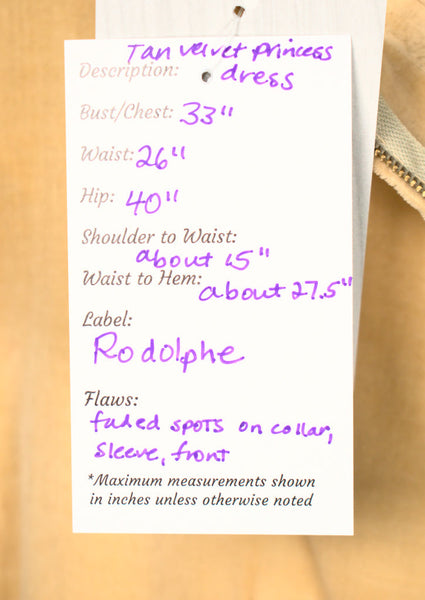 Tan velvet princess
Description: dress
Bust/Chest: 33"
Waist: 26"
Hip: 40"
Shoulder to Waist:
about 15"
Waist to Hem:
about 27.5"
Label:
Rodolphe
Flaws:
faded spots on collar,
sleeve, front
*Maximum measurements shown
in inches unless otherwise noted